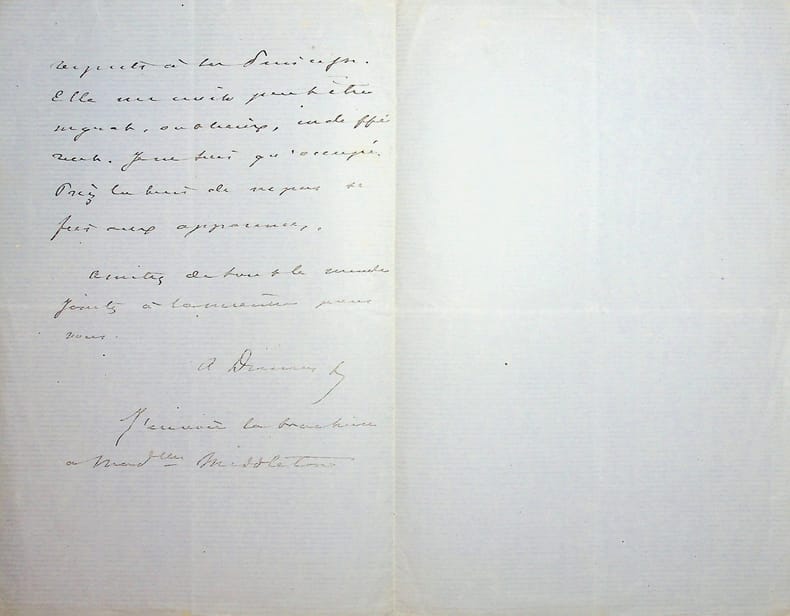 respects à la Princesse.
Elle me croit peut être
ingrat, oublieux, indiffé
rent. Je ne suis qu'occupé.
Priez la bien de ne pas se
fier aux apparences.
Amitiés de tout le monde
jointes à la mienne pour
vous.
A Dumas f
J'envoie la brochure
a Mad Middleton